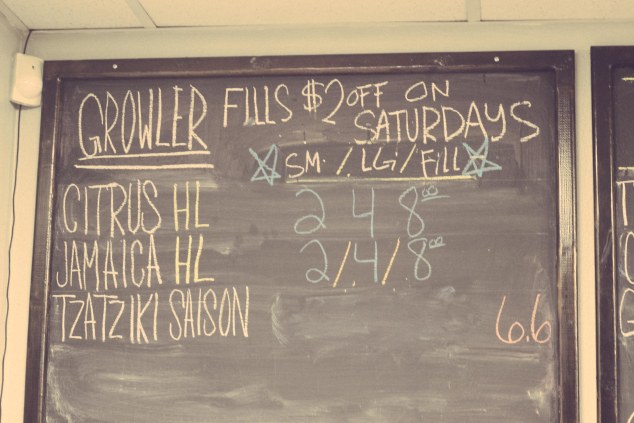 GROWLER FILLS $2 OFF ON
SATURDAYS
SM. / LG / FILL
CITRUS HL 2 4 8.00
JAMAICA HL 2/4/8.00
TZATZIKI SAISON 6.6